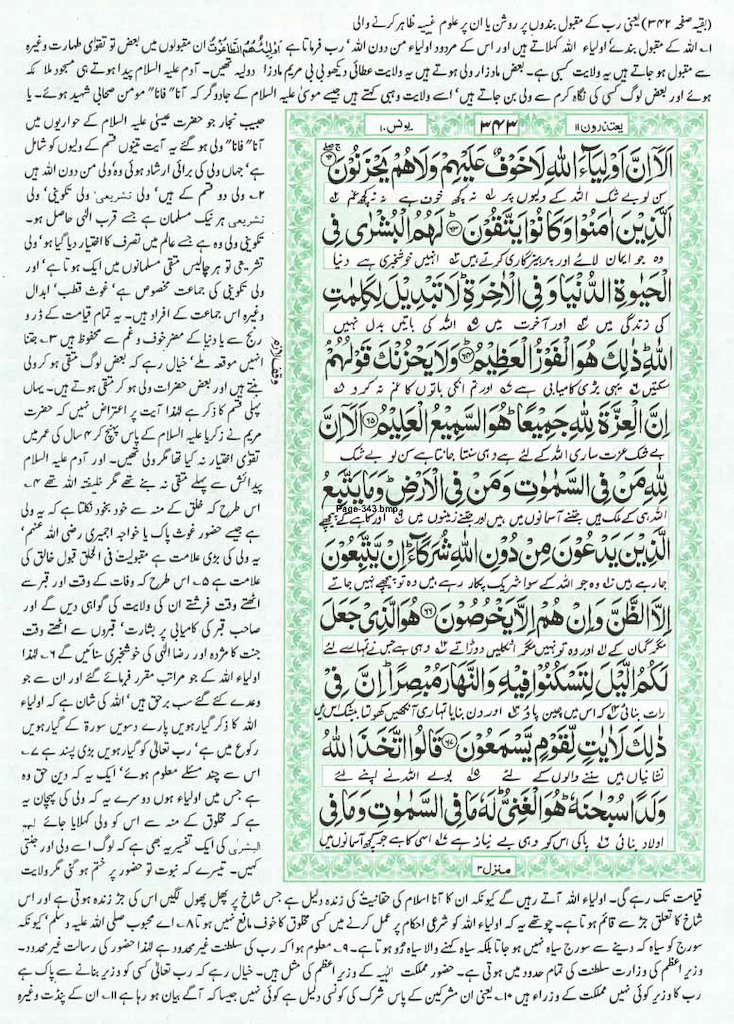 (بقیہ صفحہ ۳۴۲) یعنی رب کے مقبول بندوں پر روشن یا ان پر علوم غیبیہ ظاہر کرنے والی
۱؎ اللہ کے مقبول بندے اولیاء اللہ کہلاتے ہیں اور اس کے مردود اولیاء من دون اللہ' رب فرماتا ہے اَوْلِیٰٓئُھُمُ الطَّاغُوْتُ ان مقبولوں میں بعض تو تقویٰ طہارت وغیرہ
سے مقبول ہو جاتے ہیں یہ ولایت کسبی ہے۔ بعض مادر زاد ولی ہوتے ہیں یہ ولایت عطائی دیکھو بی بی مریم مادر زاد ولیہ تھیں۔ آدم علیہ السلام پیدا ہوتے ہی مسجود ملائکہ
ہوئے اور بعض لوگ کسی کی نگاہ کرم سے ولی بن جاتے ہیں' اسے ولایت وہبی کہتے ہیں جیسے موسیٰ علیہ السلام کے جادوگر کہ آنا" فانا" مومن صحابی شہید ہوئے۔ یا
یعتذرون ۱۱
۳۴۳
یونس ۱۰
اَلَاۤ اِنَّ اَوْلِیَآءَ اللّٰهِ لَا خَوْفٌ عَلَیْهِمْ وَلَا هُمْ یَحْزَنُوْنَ
سن لو بے شک اللہ کے ولیوں پر نہ کچھ خوف ہے نہ کچھ غم
الَّذِیْنَ اٰمَنُوْا وَكَانُوْا یَتَّقُوْنَ ۶۳ لَهُمُ الْبُشْرٰی فِی
وہ جو ایمان لائے اور پرہیزگاری کرتے ہیں انہیں خوشخبری ہے دنیا
الْحَیٰوةِ الدُّنْیَا وَفِی الْاٰخِرَةِ لَا تَبْدِیْلَ لِكَلِمٰتِ
کی زندگی میں اور آخرت میں اللہ کی باتیں بدل نہیں
اللّٰهِ ذٰلِكَ هُوَ الْفَوْزُ الْعَظِیْمُ ۶۴ وَلَا یَحْزُنْكَ قَوْلُهُمْ
سکتیں یہی بڑی کامیابی ہے اور تم انکی باتوں کا غم نہ کرو
اِنَّ الْعِزَّةَ لِلّٰهِ جَمِیْعًا هُوَ السَّمِیْعُ الْعَلِیْمُ ۶۵ اَلَاۤ اِنَّ
بے شک عزت ساری اللہ کے لئے ہے وہی سنتا جانتا ہے سن لو بے شک
لِلّٰهِ مَنْ فِی السَّمٰوٰتِ وَمَنْ فِی الْاَرْضِ وَمَا یَتَّبِعُ
اللہ ہی کے ملک ہیں جتنے آسمانوں میں ہیں اور جتنے زمینوں میں اور کاہے کے پیچھے
Page-343.bmp
الَّذِیْنَ یَدْعُوْنَ مِنْ دُوْنِ اللّٰهِ شُرَكَآءَ اِنْ یَّتَّبِعُوْنَ
جا رہے ہیں وہ جو اللہ کے سوا شریک پکار رہے ہیں وہ تو پیچھے نہیں جاتے
اِلَّا الظَّنَّ وَاِنْ هُمْ اِلَّا یَخْرُصُوْنَ ۶۶ هُوَ الَّذِیْ جَعَلَ
مگر گمان کے اور وہ تو نہیں مگر اٹکلیں دوڑاتے وہی ہے جس نے تمہارے لئے
لَكُمُ الَّیْلَ لِتَسْكُنُوْا فِیْهِ وَالنَّهَارَ مُبْصِرًا اِنَّ فِیْ
رات بنائی کہ اس میں چین پاؤ اور دن بنایا تمہاری آنکھیں کھولتا بیشک اس میں
ذٰلِكَ لَاٰیٰتٍ لِّقَوْمٍ یَّسْمَعُوْنَ ۶۷ قَالُوا اتَّخَذَ اللّٰهُ
نشانیاں ہیں سننے والوں کے لئے بولے اللہ نے اپنے لئے
وَلَدًا سُبْحٰنَهٗ هُوَ الْغَنِیُّ لَهٗ مَا فِی السَّمٰوٰتِ وَمَا فِی
اولاد بنائی پاکی اس کو وہی بے نیاز ہے اسی کا ہے جو کچھ آسمانوں میں
منزل ۳
حبیب نجار جو حضرت عیسیٰ علیہ السلام کے حواریوں میں
آنا" فانا" ولی ہو گئے یہ آیت تینوں قسم کے ولیوں کو شامل
ہے' جہاں ولی کی برائی ارشاد ہوئی وہ ولی من دون اللہ ہیں
۲؎ ولی دو قسم کے ہیں' ولی تشریعی' ولی تکوینی' ولی
تشریعی ہر نیک مسلمان ہے جسے قرب الٰہی حاصل ہو۔
تکوینی ولی وہ ہے جسے عالم میں تصرف کا اختیار دیا گیا ہو' ولی
تشریعی تو ہر چالیس متقی مسلمانوں میں ایک ہوتا ہے' اور
ولی تکوینی کی جماعت مخصوص ہے' غوث قطب' ابدال
وغیرہ اس جماعت کے افراد ہیں۔ یہ تمام قیامت کے ڈر و
رنج سے یا دنیا کے مضر خوف و غم سے محفوظ ہیں ۳؎ جتنا
انہیں موقعہ ملے' خیال رہے کہ بعض لوگ متقی ہو کر ولی
بنتے ہیں اور بعض حضرات ولی ہو کر متقی ہوتے ہیں۔ یہاں
پہلی قسم کا ذکر ہے لہذا آیت پر اعتراض نہیں کہ حضرت
مریم نے زکریا علیہ السلام کے پاس پہنچ کر ۴ سال کی عمر میں
تقویٰ اختیار نہ کیا تھا مگر ولی تھیں۔ اور آدم علیہ السلام
پیدائش سے پہلے متقی نہ بنے تھے مگر خلیفتہ اللہ تھے ۴؎
اس طرح کہ خلق کے منہ سے خود بخود نکلتا ہے کہ یہ ولی
ہے جیسے حضور غوث پاک یا خواجہ اجمیری رضی اللہ عنہم'
یہ ولی کی بڑی علامت ہے مقبولیت فی الخلق قبول خالق کی
علامت ہے ۵؎ اس طرح کہ وفات کے وقت اور قبر سے
اٹھتے وقت فرشتے ان کی ولایت کی گواہی دیں گے اور
صاحب قبر کی کامیابی پر بشارت' قبروں سے اٹھتے وقت
جنت کا مژدہ اور رضا الٰہی کی خوشخبری سنائیں گے ۶؎ لہذا
اولیاء اللہ کے جو مراتب مقرر فرمائے گئے اور ان سے جو
وعدے کئے گئے سب برحق ہیں' اللہ کی شان ہے کہ اولیاء
اللہ کا ذکر گیارہویں پارے دسویں سورۃ کے گیارہویں
رکوع میں ہے' رب تعالیٰ کو گیارہویں بڑی پسند ہے ۷؎
اس سے چند مسئلے معلوم ہوئے' ایک یہ کہ دین حق وہ
ہے جس میں اولیاء ہوں دوسرے یہ کہ ولی کی پہچان یہ
کہ مخلوق کے منہ سے اس کو ولی کہلایا جائے لہم
البشریٰ کی ایک تفسیر یہ بھی ہے کہ لوگ اسے ولی اور جنتی
کہیں۔ تیسرے کہ نبوت تو حضور پر ختم ہو گئی مگر ولایت
قیامت تک رہے گی۔ اولیاء اللہ آتے رہیں گے کیونکہ ان کا آنا اسلام کی حقانیت کی زندہ دلیل ہے جس شاخ پر پھل پھول لگیں اس کی جڑ زندہ ہوتی ہے اور اس
شاخ کا تعلق جڑ سے قائم ہوتا ہے۔ چوتھے یہ کہ اولیاء اللہ کو شرعی احکام پر عمل کرنے میں کسی مخلوق کا خوف مانع نہیں ہوتا ۸؎ اے محبوب صلی اللہ علیہ وسلم' کیونکہ
سورج کو سیاہ کہہ دینے سے سورج سیاہ نہیں ہو جاتا بلکہ سیاہ کہنے والا سیاہ رو ہوتا ہے۔ ۹؎ معلوم ہوا کہ رب کی سلطنت غیر محدود ہے لہذا حضور کی رسالت غیر محدود۔
وزیر اعظم کی وزارت سلطنت کی تمام حدود میں ہوتی ہے۔ حضور مملکت الٰہیہ کے وزیر اعظم کی مثل ہیں۔ خیال رہے کہ رب تعالیٰ کسی کو وزیر بنانے سے پاک ہے
رب کا وزیر کوئی نہیں مملکت کے وزراء ہیں ۱۰؎ یعنی ان مشرکین کے پاس شرک کی کونسی دلیل ہے کوئی نہیں جیسا کہ آگے بیان ہو رہا ہے ۱۱؎ ان کے پنڈت وغیرہ